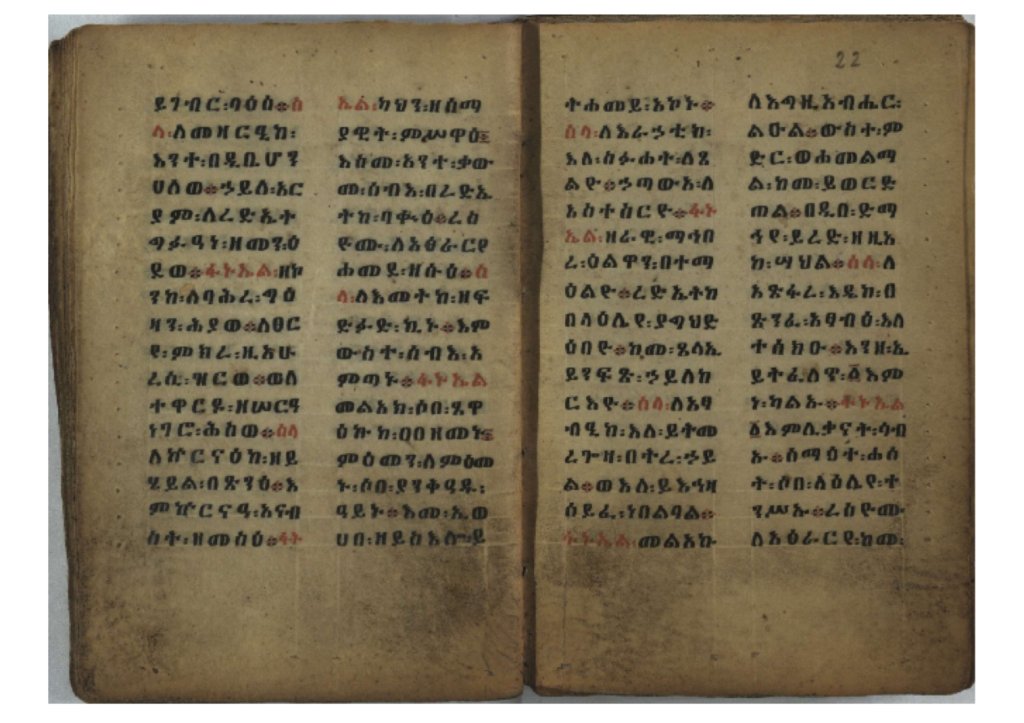 ይገብር፡ባዕዕ። ሰ
ላ፡ለመዛርዒከ፡
እንተ፡በዲቤሆን
ሀለወ። ኃይለ፡አር
ያም፡ለረድኤተ
ግፉዓነ፡ዘመን፡ዕ
ደወ። ፋኑኤል፡ዘኮ
ንከ፡ለባሕረ፡ግዕ
ዛን፡ሐያወ። ለፀር
የ፡ምክረ፡ዚአሁ
ረሲ፡ዝርወ። ወለ
ተዋርዶ፡ዘሠርዓ
ነግሮ፡ሕስወ። ሰላ
ለኵርናዕከ፡ዘይ
ሄይል፡በጽንዕ። እ
ምኵርናዓ፡አናብ
ስት፡ዘመስዕ። ፋኑ
ኤል፡ካህን፡ዘሰማ
ያዊት፡ምሥዋዕ።
እስመ፡አንተ፡ቃው
መ፡ሰብእ፡በረድኤ
ትከ፡ባቍዕ። ረስ
ዮሙ፡ለአፅራርየ
ሐመይ፡ዘሱዕ። ሰ
ላ፡ለእመትከ፡ዘፍ
ድፉድ፡ኪኑ። እም
ውስተ፡ሰብእ፡አ
ምጣኑ። ፋኑኤል
መልአክ፡ሶበ፡ጌዋ
ዕኩከ፡ዐዐዘመኑ።
ምዕመን፡ለምዕመ
ኑ፡ሶበ፡ያንቀዓዱ፡
ዓይኑ። እመ፡ኢወ
ሀበ፡ዘይስእሎ፡ይ
22
ተሐመይ፡አኮኑ።
ሰላ፡ለእራኃቲከ፡
እለ፡ስፉሐት፡ለጸ
ልዮ። ኃጣውአ፡ለ
አስተስርዮ። ፋኑ
ኤል፡ዘራዊ፡ማኅበ
ረ፡ዕልዋን፡በተማ
ዕልዮ። ረድኤቶከ
በላዕሌየ፡ያግህድ
ዕበዮ። ከመ፡ጌሳኢ
ይንፍጽ፡ኃይለከ
ርእዮ። ሰላ፡ለአፃ
ብዒከ፡እለ፡ይተመ
ረጐዛ፡በተረ፡ኃይ
ል። ወእለ፡ይእኅዛ
ሰይፈ፡ነበልባል።
ፋኑኤል፡መልአኩ
ለእግዚአብሔር፡
ልዑል። ውስተ፡ም
ድር፡ወሐመልማ
ል፡ከመ፡ይወርድ
ጠል። በዲበ፡ድማ
ኅየ፡ይረድ፡ዘዚአ
ከ፡ሣህል። ሰላ፡ለ
አጽፋረ፡እዴከ፡በ
ጽንፈ፡አፃብዕ፡እለ
ተሰክዑ። እንዘ፡ኢ
ይትፈለጥ፡፩እም
ነ፡ካልኡ። ፋኑኤል
፩እምሊቃናት፡ሳብ
ኡ። ስማዕት፡ሐሰ
ት፡ሶበ፡ለዕሌየ፡ተ
ንሥኡ። ረስዮሙ
ለአዕራርየ፡ከመ፡